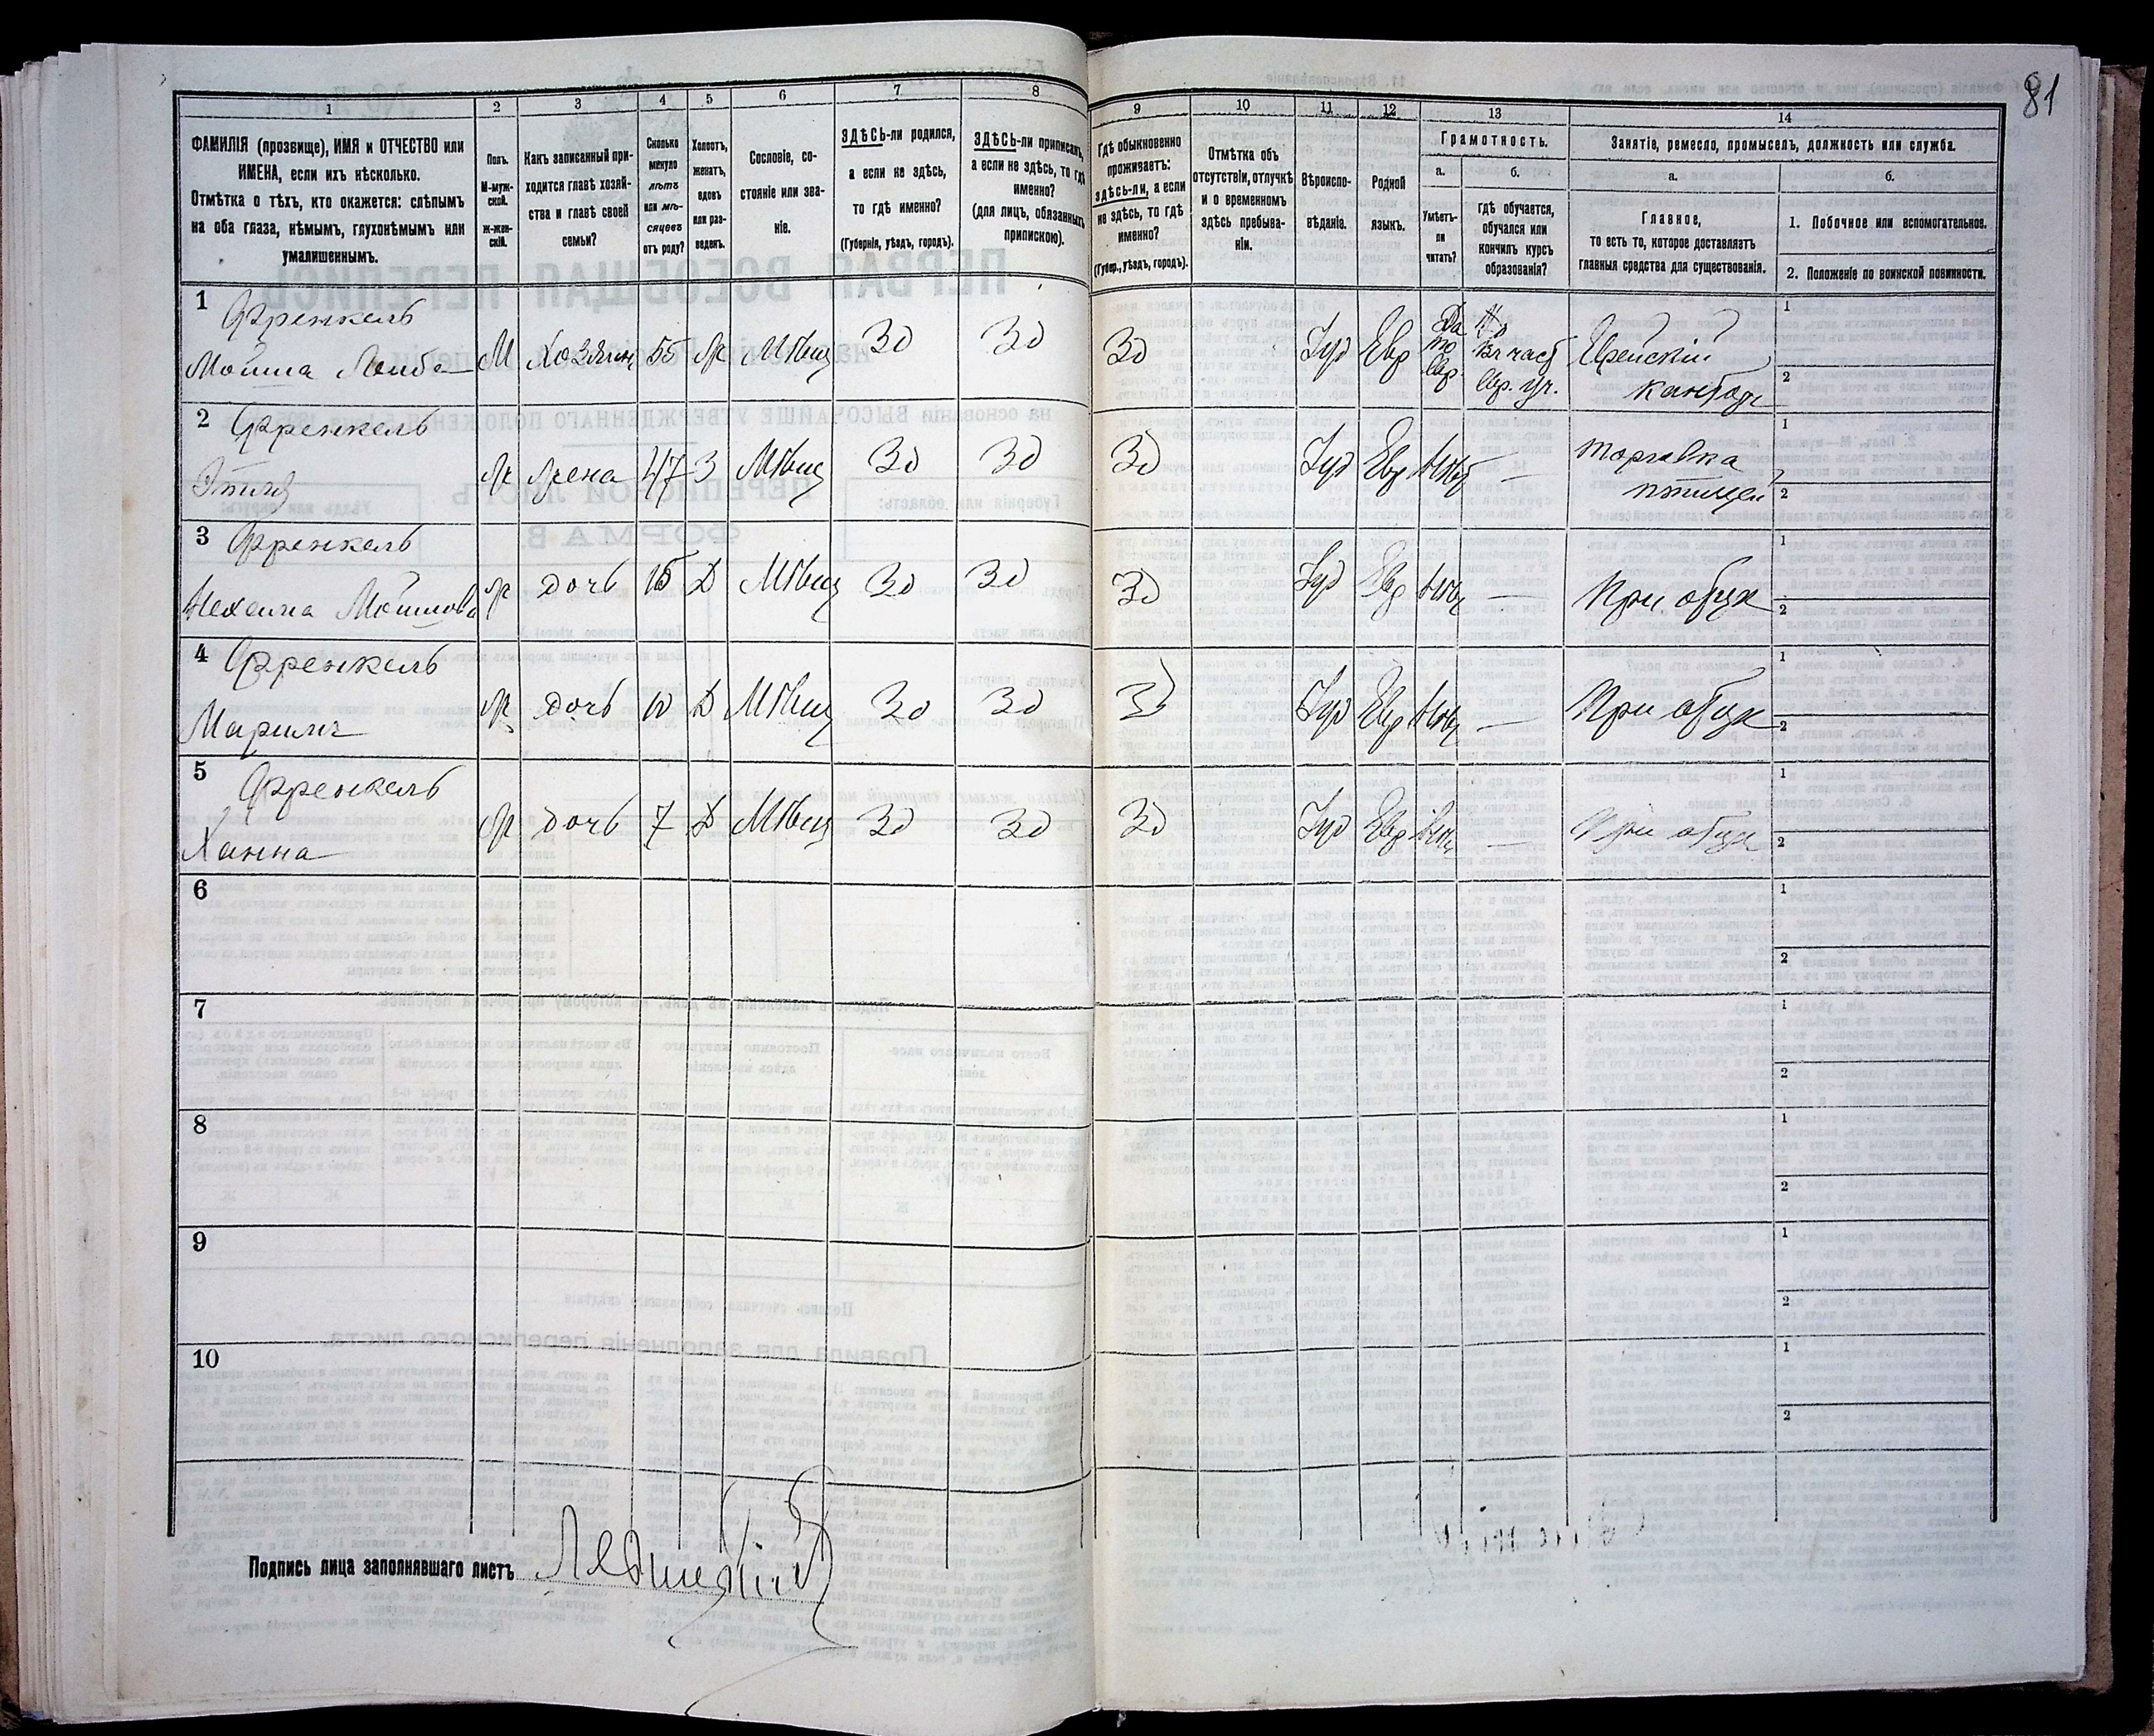 81
1
2
3
4
5
6
7
8
9
10
11
12
13
14
ФАМИЛІЯ (прозвище), ИМЯ и ОТЧЕСТВО или
ИМЕНА, если ихъ нѣсколько.
Отмѣтка о тѣхъ, кто окажется: слѣпымъ
на оба глаза, нѣмымъ, глухонѣмымъ или
умалишеннымъ.
Полъ.
М-муж-
ской.
Ж-жен-
скій.
Какъ записанный при-
ходится главѣ хозяй-
ства и главѣ своей
семьи?
Сколько
минуло
лѣтъ
или мѣ-
сяцевъ
отъ роду?
Холостъ,
женатъ,
вдовъ
или раз-
веденъ.
Сословіе, со-
стояніе или зва-
ніе.
ЗДѢСЬ-ли родился,
а если не здѣсь,
то гдѣ именно?
(Губернія, уѣздъ, городъ).
ЗДѢСЬ-ли приписанъ,
а если не здѣсь, то гдѣ
именно?
(для лицъ, обязанныхъ
припискою).
Гдѣ обыкновенно
проживаетъ:
здѣсь-ли, а если
не здѣсь, то гдѣ
именно?
(Губер., уѣздъ, городъ).
Отмѣтка объ
отсутствіи, отлучкѣ
и о временномъ
здѣсь пребыва-
ніи.
Вѣроиспо-
вѣданіе.
Родной
языкъ.
Грамотность.
а.
Умѣетъ-
ли
читать?
б.
гдѣ обучается,
обучался или
кончилъ курсъ
образованія?
Занятіе, ремесло, промыселъ, должность или служба.
а.
Главное,
то есть то, которое доставляетъ
главныя средства для существованія.
б.
1. Побочное или вспомогательное.
2. Положеніе по воинской повинности.
1 Френкель
Мойша Лейба М Хозяин 55 Ж Мѣщ Зд Зд Зд Іуд Евр Да по евр. част евр. уч. Еврейскій
1
2
2 Френкель
Ж Жена 47 З Мѣщ Зд Зд Зд Іуд Евр — торговка
птицей
1
2
3 Френкель
Нехема Мойшова Ж дочь Д Мѣщ Зд Зд Зд Іуд Евр — При
1
2
4 Френкель
Ж дочь 10 Д Мѣщ Зд Зд Зд Іуд Евр — При
1
2
5 Френкель
Ханна Ж дочь 7 Д Мѣщ Зд Зд Зд Іуд Евр — При
1
2
6
1
2
7
1
2
8
1
2
9
1
2
10
1
2
Подпись лица заполнявшаго листъ